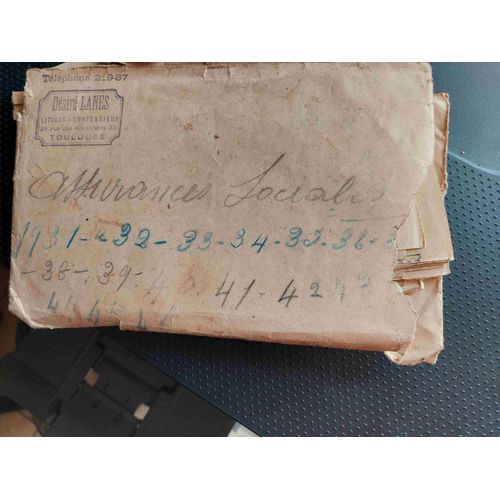 Téléphone 219-87
Désiré LANES
LITIGES - CONTENTIEUX
rue des
TOULOUSE
Assurances Sociales
1931-32-33-34-35-36-3
-38-39-40.41-42 43
44 45